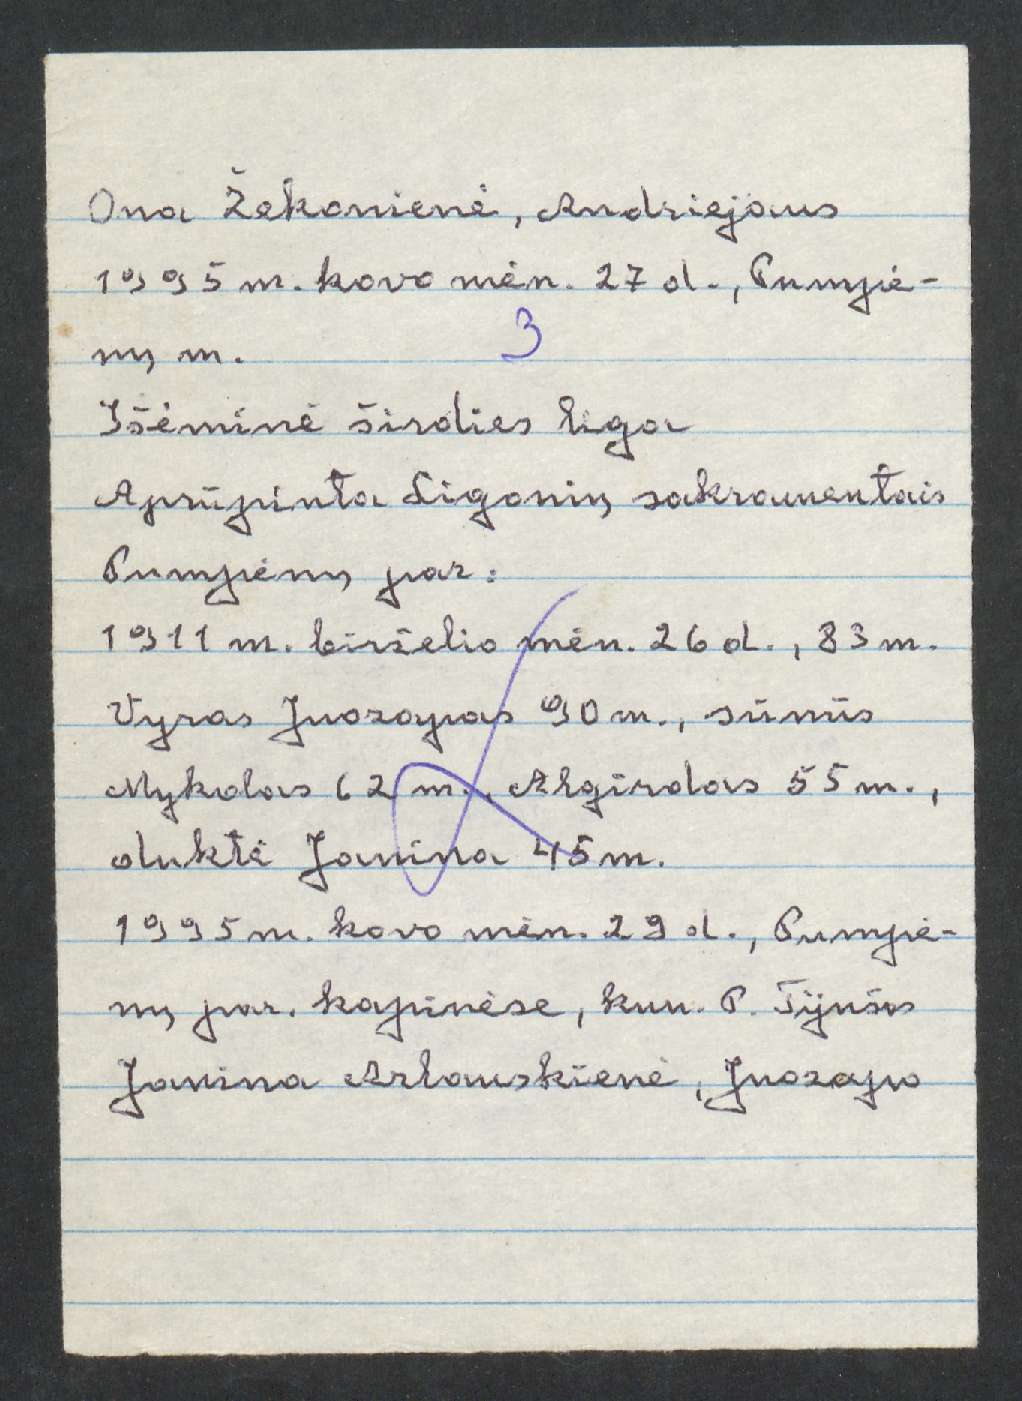 Ona Žekonienė, Andriejaus
1995 m. kovo mėn. 27 d., Pumpė-
nų m.
3
Išėminė širdies liga
Aprūpinta Ligonių sakramentais
Pumpėnų par.
1911 m. birželio mėn. 26 d., 83 m.
Vyras Juozapas 90 m., sūnūs
Mykolas 62 m., Algirdas 55 m.,
duktė Janina 45 m.
1995 m. kovo mėn. 29 d., Pumpė-
nų par. kapinėse, kun. P. Tijušas
Janina Arlauskienė, Juozapo